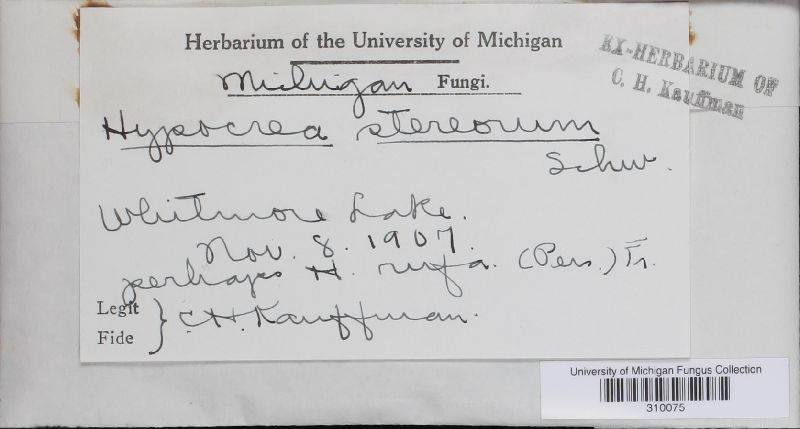 Herbarium of the University of Michigan
Michigan Fungi.
EX-HERBARIUM OF
C. H. Kauffman
Hypocrea stereorum
Schw.
Whitmore Lake.
Nov. 8. 1907.
perhaps H. rufa. (Pers.) Fr.
Legit
Fide
} C.H. Kauffman.
University of Michigan Fungus Collection
310075